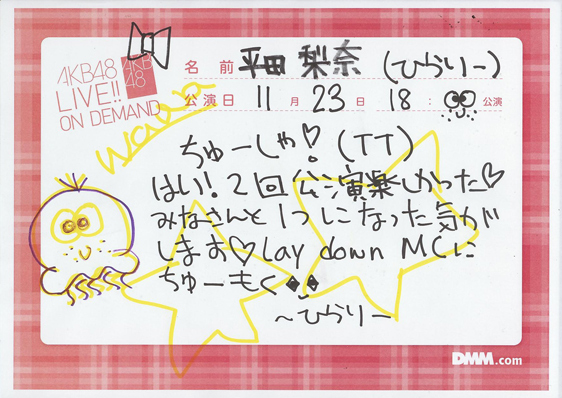 AKB48
LIVE!!
ON DEMAND
AKB
48
名前 平田 梨奈 (ひらりー)
公演日 11月23日 18: 公演
wawa
ちゅーしゃ♡! (TT)
はい!2回公演楽しかった♡
みなさんと1つになった気が
します♡Lay down MCに
ちゅーもく
~ひらりー
DMM.com